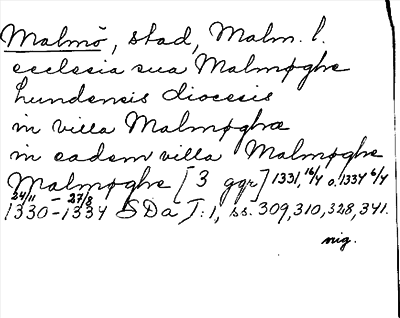 Malmö, stad, Malm. l.
ecclesia sua Malmøghe
Lundensis diocesis
in villa Malmøghæ
in eadem villa Malmøghe
Malmøghe [3 ggr] 1331, 16/4 o. 1334 6/4
24/11 1330 - 27/8 1334 SDa I:1, ss. 309, 310, 328, 341.
mig.